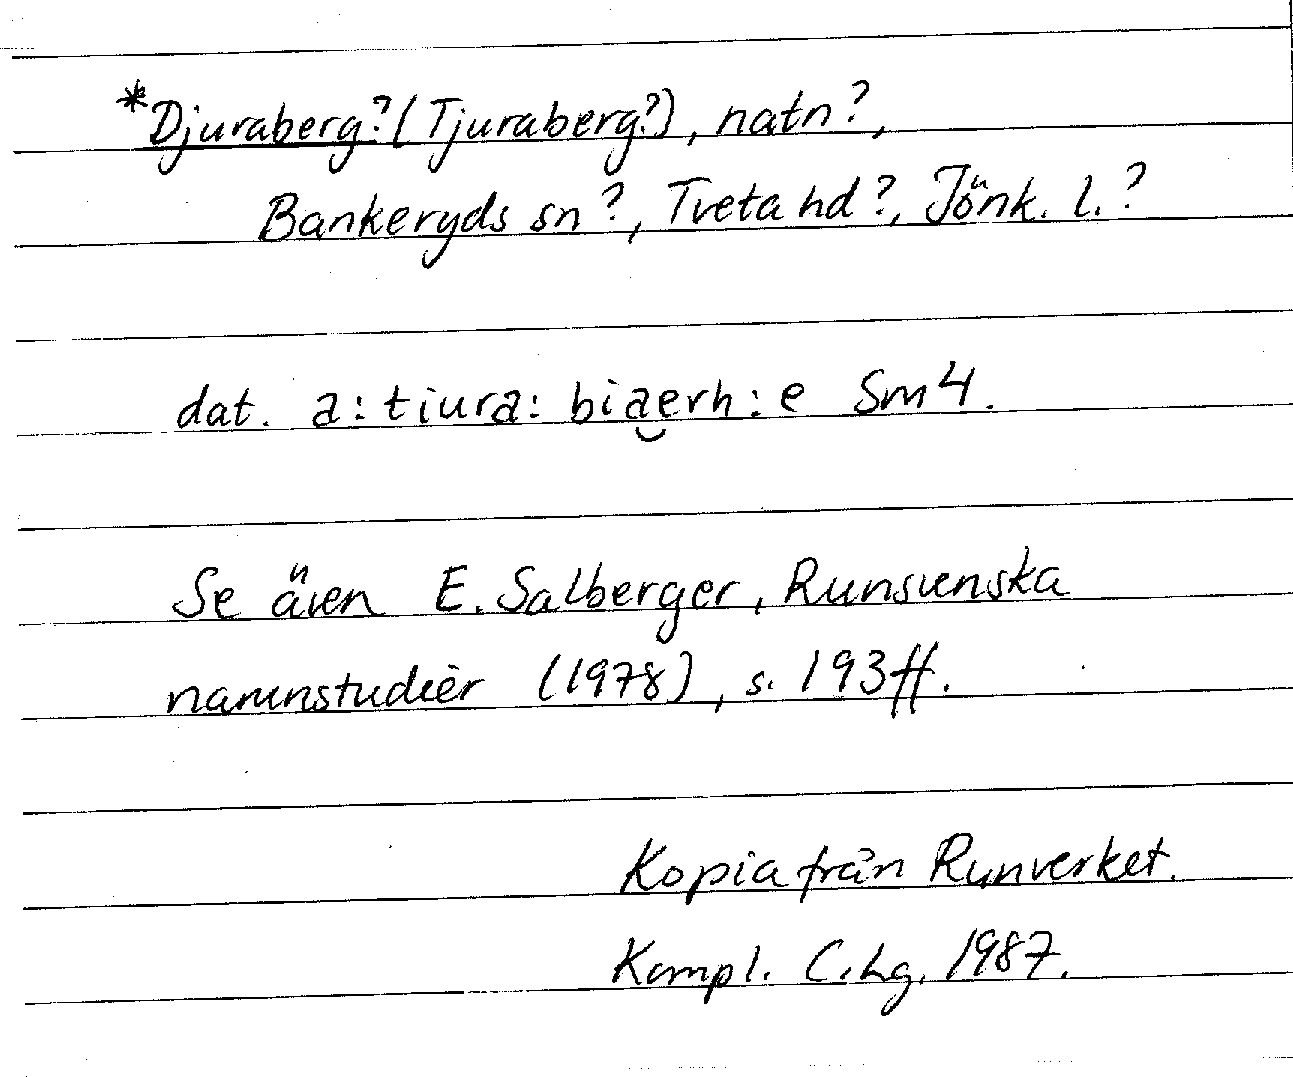 *Djuraberg?(Tjuraberg?), natn?,
Bankeryds sn?, Tveta hd?, Jönk. l.?
dat. a:tiura: biaerh:e Sm4.
Se även E. Salberger, Runsvenska
namnstudier (1978), s. 193ff.
Kopia från Runverket.
Kompl. C.Lg. 1987.